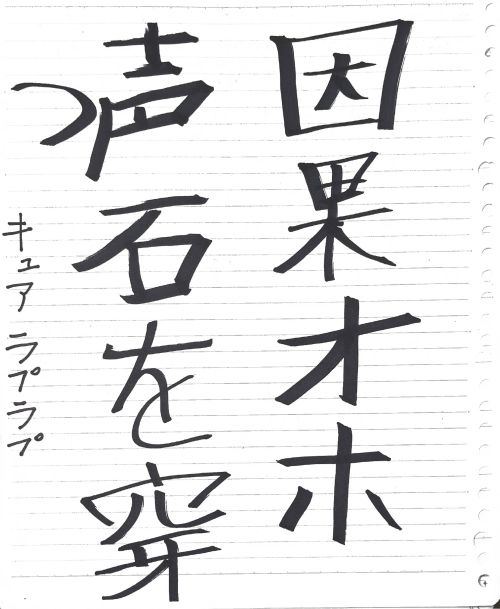 因果オホ
声石を穿つ
キュアラプラプ